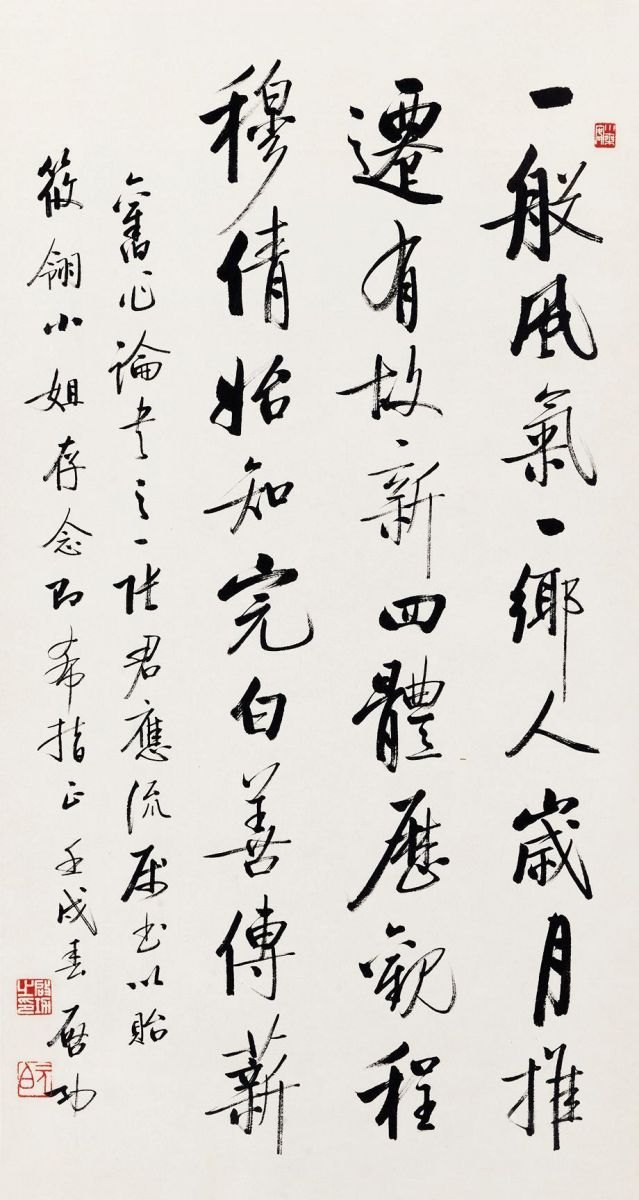 一般風氣一鄉人歲月推
遷有故新四體歷觀程
穆倩始知完白善傳薪
舊作論書之一陆君應流屬書以貽
筱翎小姐存念即希指正壬戌春啓功